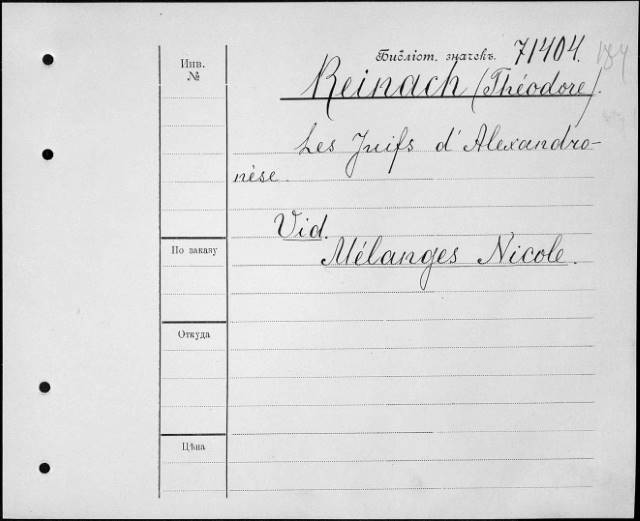 Библіот. значекъ. 71404. 184
Инв.
№
Reinach (Théodore).
Les Juifs d'Alexandro-
nèse.
Vid.
Mélanges Nicole.
По заказу
Откуда
Цѣна